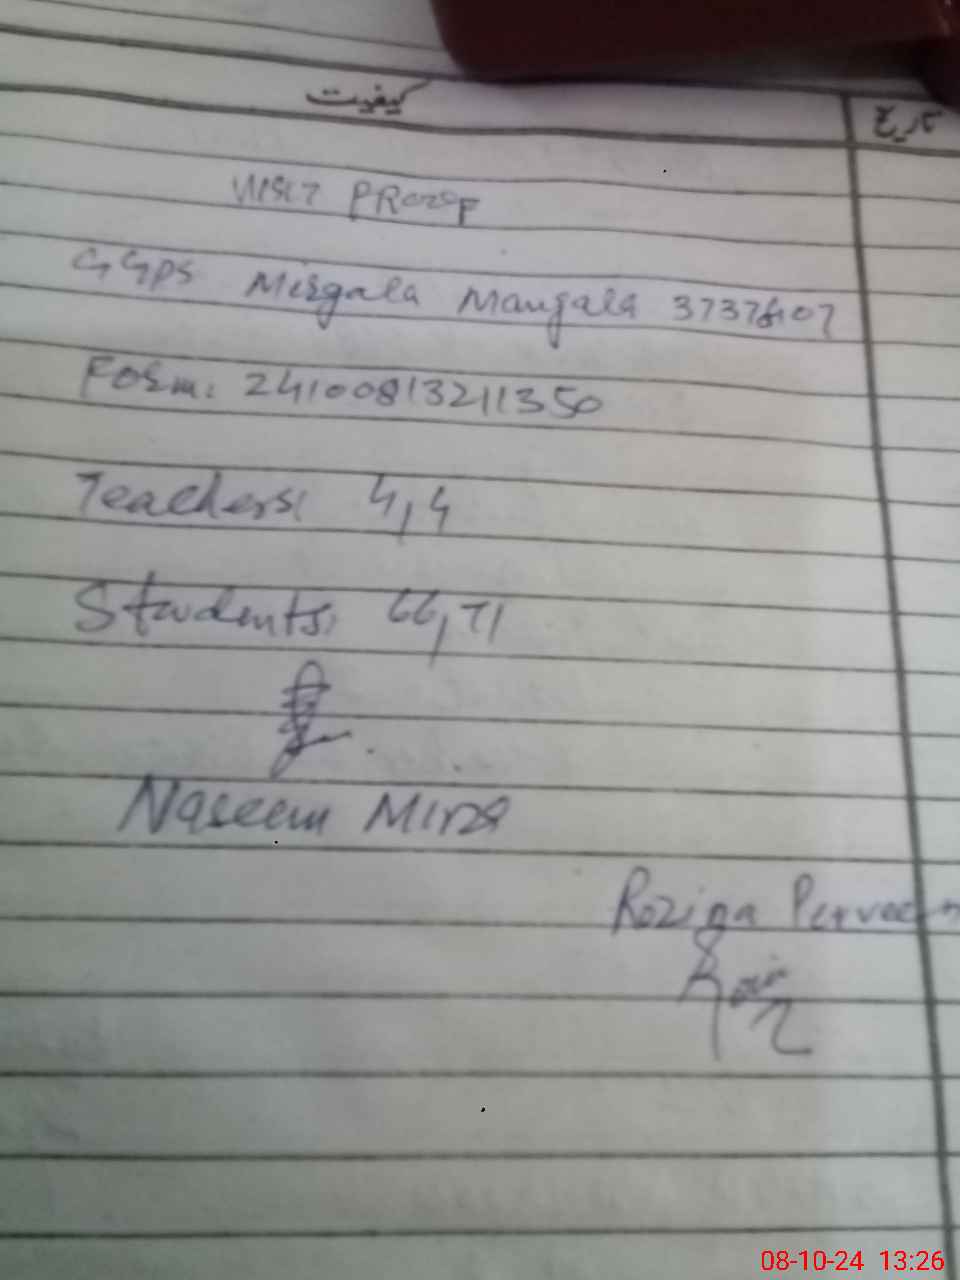 کیفیت
تاریخ
VISIT PROOF
GGPS Mirgala Mangala
Form: 24100813211350
Teachers: 4,4
Students: 66,71
Naseem Mirza
Rozina Perveen
08-10-24 13:26